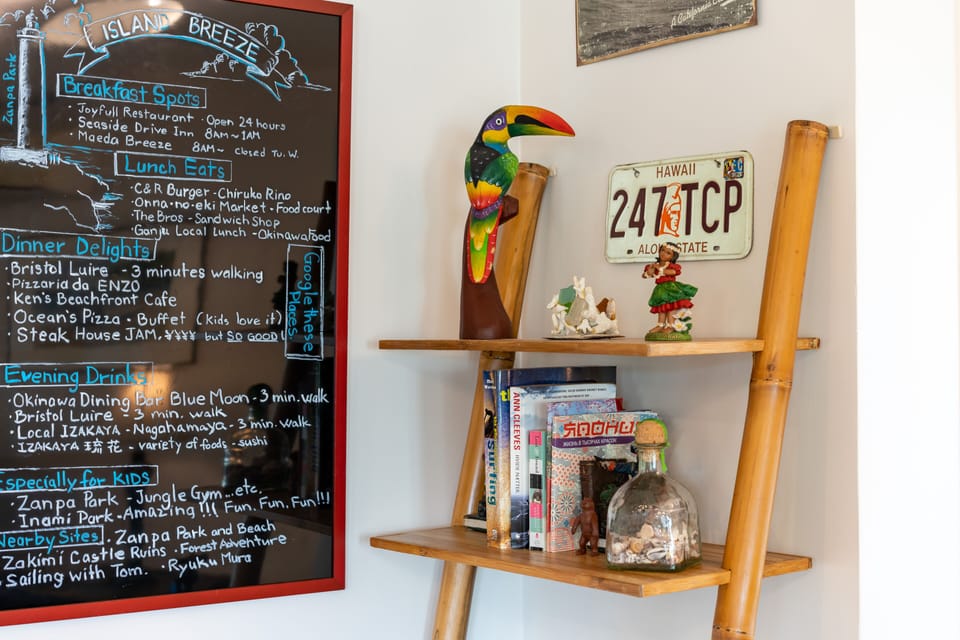 Zanpa Park
ISLAND BREEZE
Breakfast Spots
· Joyfull Restaurant · Open 24 hours
· Seaside Drive Inn 8AM~1AM
· Maeda Breeze 8AM~ closed Tu. W.
Lunch Eats
· C&R Burger - Chiruko Rino
· Onna-no-eki Market - Food court
· The Bros - Sandwich Shop
· Ganju Local Lunch - Okinawa food
Dinner Delights
· Bristol Luire - 3 minutes walking
· Pizzarida ENZO
· Ken's Beachfront Cafe
· Ocean's Pizza · Buffet (Kids love it)
· Steak House JAM, ¥¥¥¥ but SO GOOD!
Google these Places.
Evening Drinks
· Okinawa Dining Bar Blue Moon - 3 min. walk
· Bristol Luire - 3 min. walk
· Local IZAKAYA - Nagahamaya - 3 min. walk
· IZAKAYA 琉花 - variety of foods - sushi
Especially for KIDS
· Zanpa Park - Jungle Gym...etc.
· Inami Park - Amazing!!! Fun. Fun. Fun!!!
Nearby Sites · Zanpa Park and Beach
Zakimi Castle Ruins · Forest Adventure
Sailing with Tom. · Ryuku Mura
A California
HAWAII
247 TCP
ALOHA STATE
surfing
ANN CLEEVES
ЯПОНИЯ
ЖИЗНЬ В ТЫСЯЧАХ КРАСОК